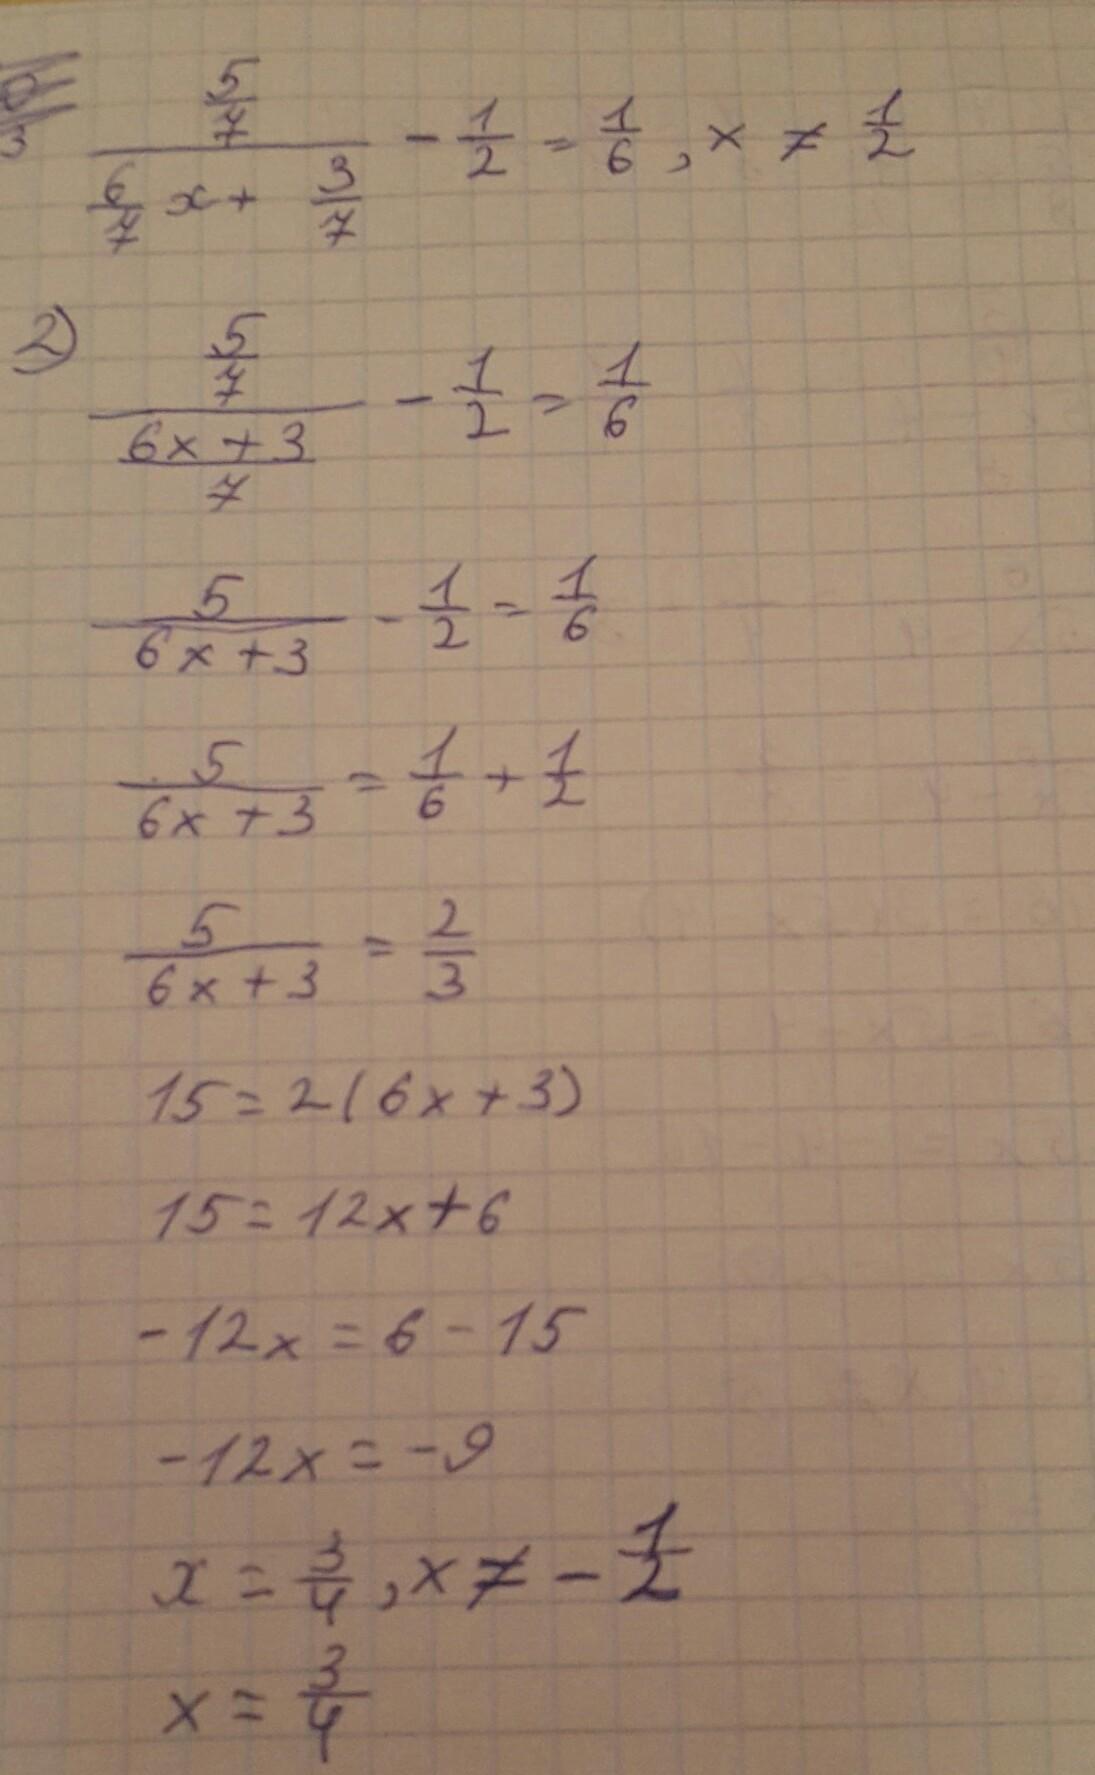 (5/7)/(6/7 x + 3/7) - 1/2 = 1/6, x ≠ 1/2
2) (5/7)/((6x + 3)/7) - 1/2 = 1/6
5/(6x + 3) - 1/2 = 1/6
5/(6x + 3) = 1/6 + 1/2
5/(6x + 3) = 2/3
15 = 2(6x + 3)
15 = 12x + 6
-12x = 6 - 15
-12x = -9
x = 3/4, x ≠ - 1/2
x = 3/4